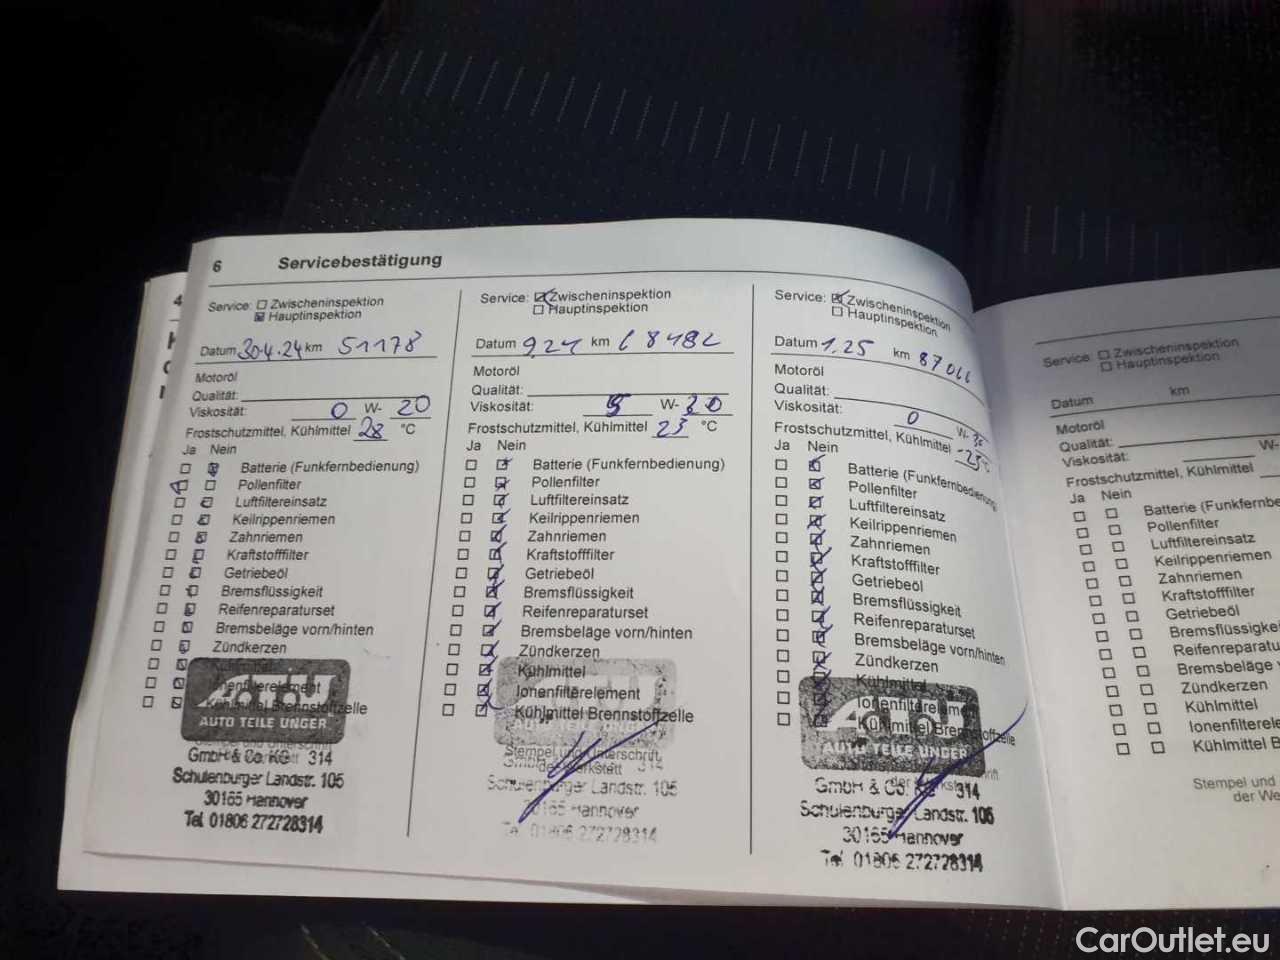 6 Servicebestätigung
Service: Zwischeninspektion
Hauptinspektion
Datum 30.4.24 km 51178
Motoröl
Qualität:
Viskosität: 0 W- 20
Frostschutzmittel, Kühlmittel 28 °C
Ja Nein
Batterie (Funkfernbedienung)
Pollenfilter
Luftfiltereinsatz
Keilrippenriemen
Zahnriemen
Kraftstofffilter
Getriebeöl
Bremsflüssigkeit
Reifenreparaturset
Bremsbeläge vorn/hinten
Zündkerzen
Kühlmittel
Ionenfilterelement
Kühlmittel Brennstoffzelle
A.T.U
AUTO TEILE UNGER
GmbH & Co. KG 314
Schulenburger Landstr. 105
30165 Hannover
Tel. 01806 272728314
Service: Zwischeninspektion
Hauptinspektion
Datum 9.24 km 68482
Motoröl
Qualität:
Viskosität: 5 W- 30
Frostschutzmittel, Kühlmittel 23 °C
Ja Nein
Batterie (Funkfernbedienung)
Pollenfilter
Luftfiltereinsatz
Keilrippenriemen
Zahnriemen
Kraftstofffilter
Getriebeöl
Bremsflüssigkeit
Reifenreparaturset
Bremsbeläge vorn/hinten
Zündkerzen
Kühlmittel
Ionenfilterelement
Kühlmittel Brennstoffzelle
AUTO TEILE UNGER
Stempel und Unterschrift
der Werkstatt 314
Schulenburger Landstr. 105
30165 Hannover
Tel. 01806 272728314
Service: Zwischeninspektion
Hauptinspektion
Datum 1.25 km 87066
Motoröl
Qualität:
Viskosität: 0 W- 30
Frostschutzmittel, Kühlmittel -25 °C
Ja Nein
Batterie (Funkfernbedienung)
Pollenfilter
Luftfiltereinsatz
Keilrippenriemen
Zahnriemen
Kraftstofffilter
Getriebeöl
Bremsflüssigkeit
Reifenreparaturset
Bremsbeläge vorn/hinten
Zündkerzen
Kühlmittel
Ionenfilterelement
Kühlmittel Brennstoffzelle
A.T.U
AUTO TEILE UNGER
GmbH & Co. KG 314
Schulenburger Landstr. 105
30165 Hannover
Tel. 01806 272728314
Service: Zwischeninspektion
Hauptinspektion
Datum km
Motoröl
Qualität:
Viskosität: W-
Frostschutzmittel, Kühlmittel
Ja Nein
Batterie (Funkfernbe
Pollenfilter
Luftfiltereinsatz
Keilrippenriemen
Zahnriemen
Kraftstofffilter
Getriebeöl
Bremsflüssigkei
Reifenreparatu
Bremsbeläge v
Zündkerzen
Kühlmittel
Ionenfilterele
Kühlmittel B
Stempel und
der We
4
CarOutlet.eu